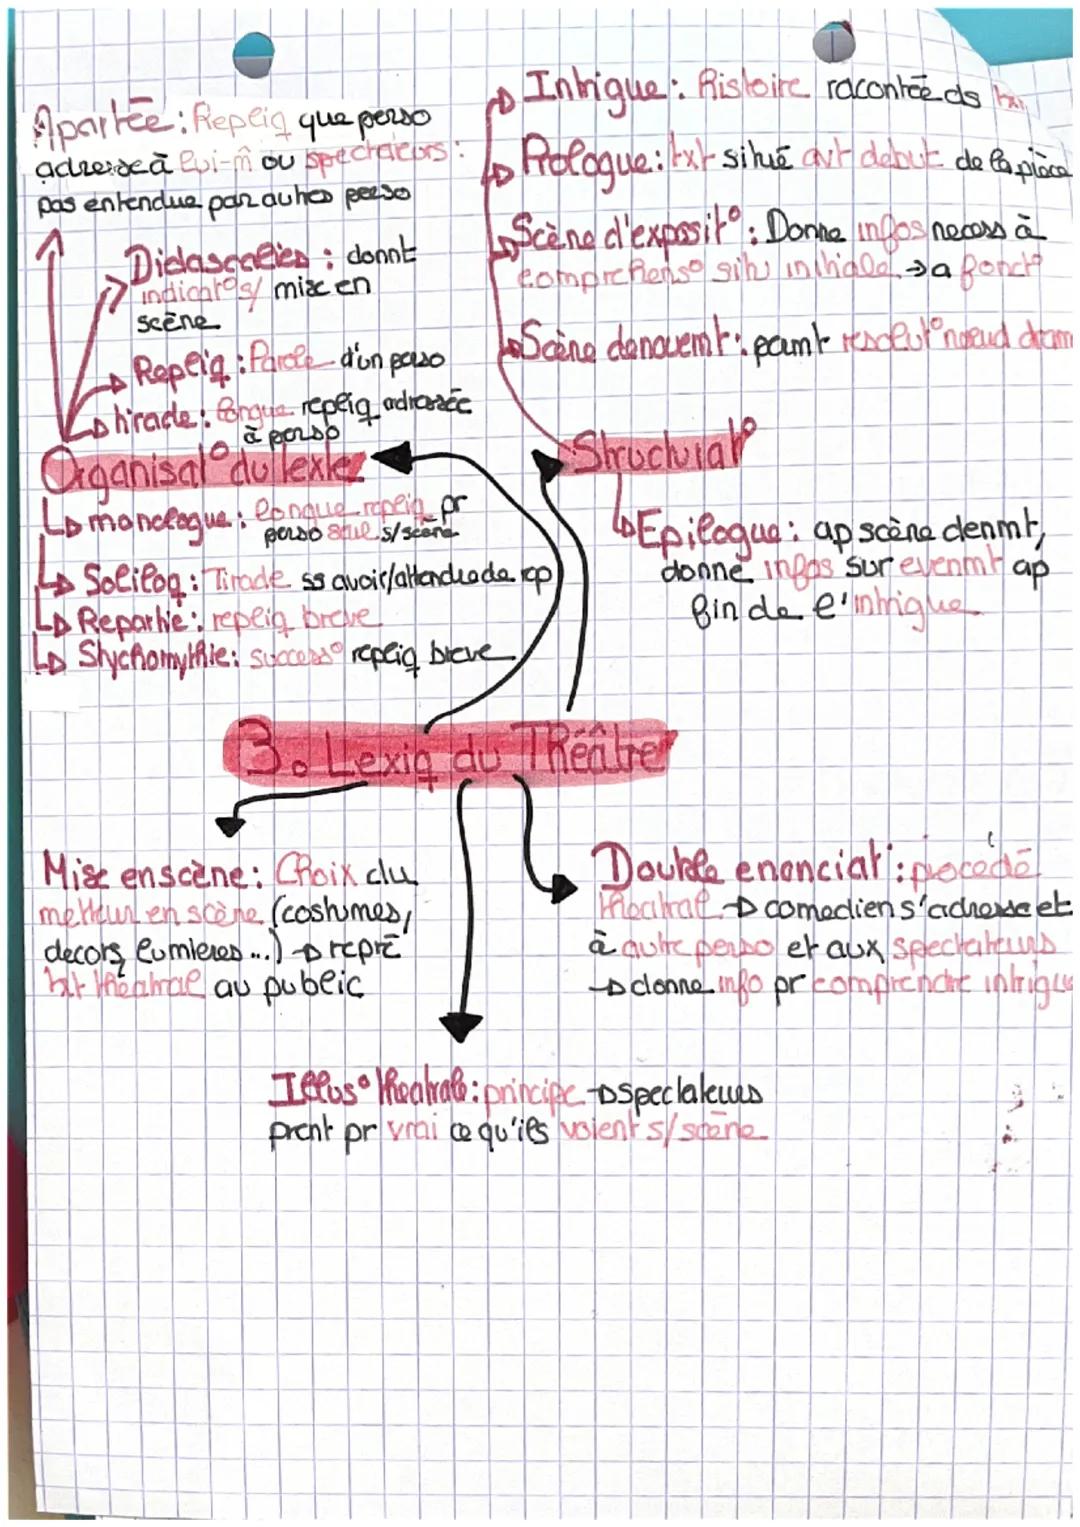 Apartée : Repliq que perso
adressé à lui-m̂ ou spectateurs :
pas entendue par autres perso
Didascalies : donnt
indicat°s/ mise en
scène
Repliq : Parole d'un perso
tirade : longue repliq adressée
à perso
Organisat° du texte
monologue : longue repliq pr
perso seul s/scène
Soliloq : Tirade ss avoir/attendre de rep
Repartie : repliq breve
Stychomythie : success° repliq breve
Intrigue : Histoire racontée ds txt
Prologue : txt situé avt debut de la pièce
Scène d'exposit° : Donne infos necess à
comprehens° situ initiale → a fonct°
Scène denouemt : pamt resolut° noeud dram
Structurat°
Epilogue : ap scène denmt,
donne infos sur evenmt ap
fin de l'intrigue
3. Lexiq du Théâtre
Mise en scène : Choix du
metteur en scène (costumes,
decors, lumieres ...) → repré
txt théatral au public
Double enonciat° : procédé
theatral → comedien s'adresse et
à autre perso et aux spectateurs
→ donne info pr comprendre intrigue
Illus° theatrale : principe → spectateurs
prent pr vrai ce qu'ils voient s/scène